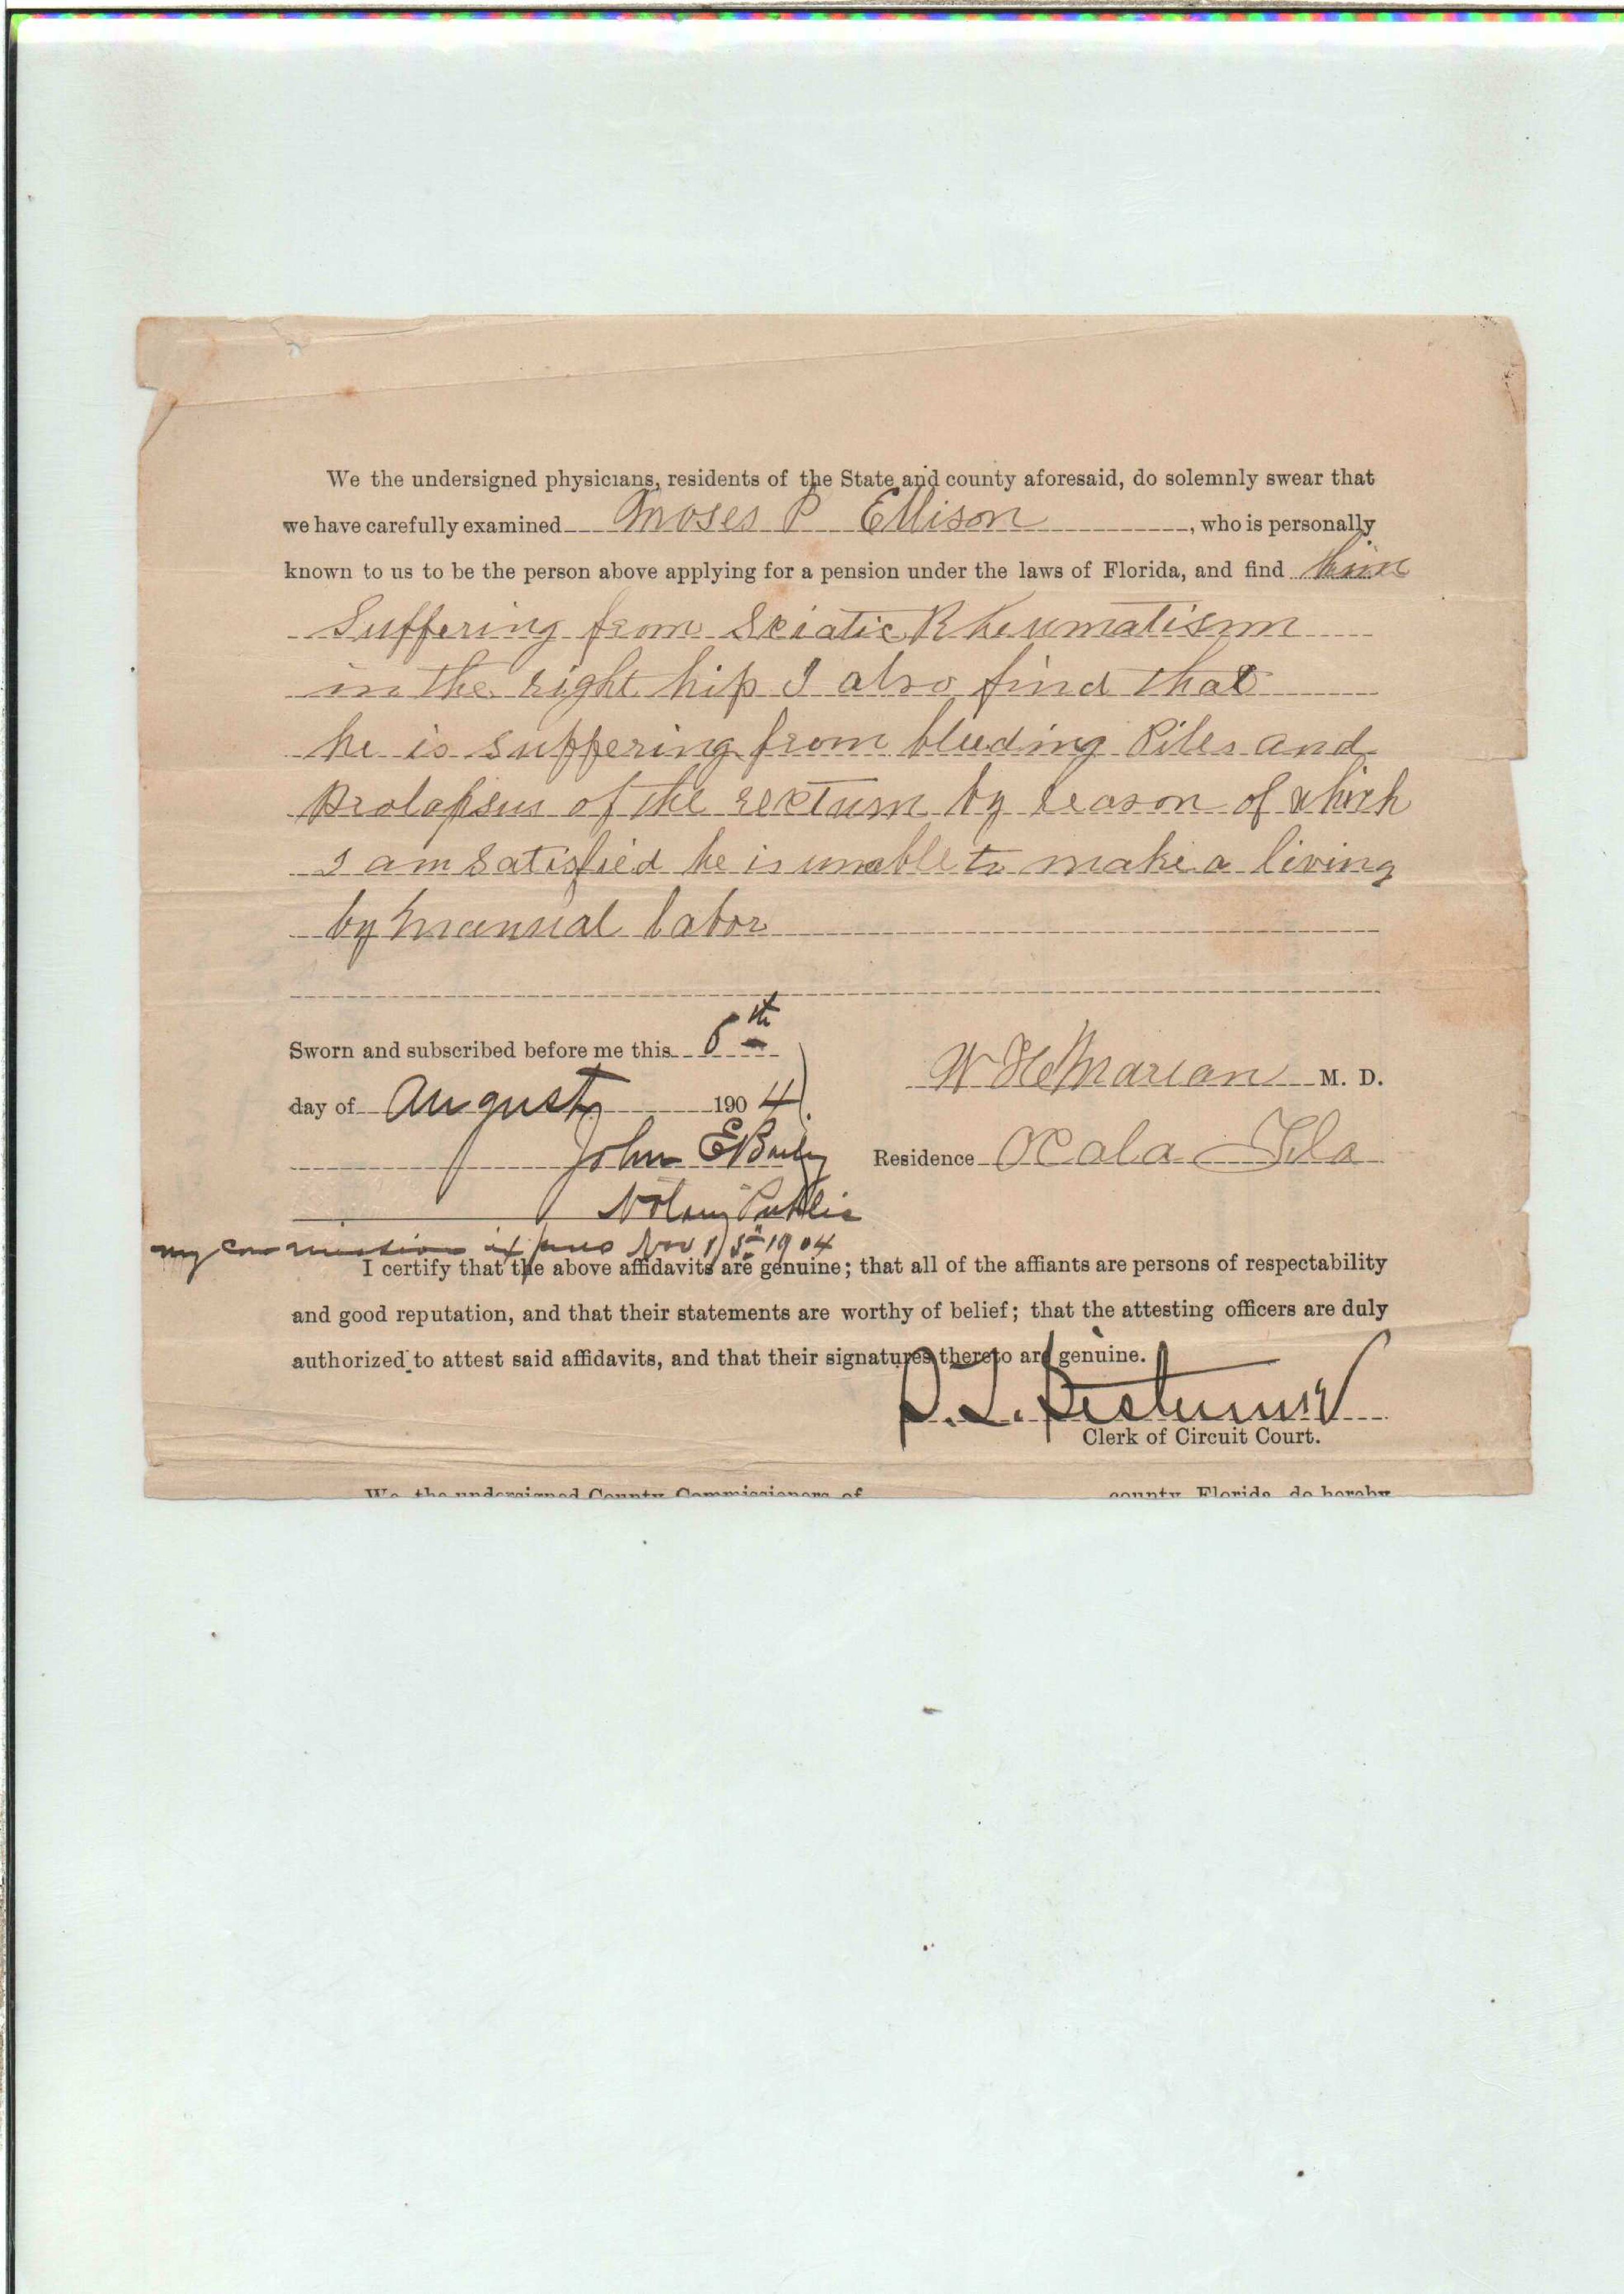 We the undersigned physicians, residents of the State and county aforesaid, do solemnly swear that
we have carefully examined Moses P Ellison, who is personally
known to us to be the person above applying for a pension under the laws of Florida, and find him
Suffering from Sciatic Rheumatism
in the right hip I also find that
he is suffering from bleeding Piles and
Prolapsus of the rectum by reason of which
I am satisfied he is unable to make a living
by manual labor
Sworn and subscribed before me this 6th
day of August 1904
W H Marean M. D.
John E Baily
Residence Ocala Fla
Notary Public
my commission expires Nov 15th 1904
I certify that the above affidavits are genuine; that all of the affiants are persons of respectability
and good reputation, and that their statements are worthy of belief; that the attesting officers are duly
authorized to attest said affidavits, and that their signatures thereto are genuine.
Clerk of Circuit Court.
We the undersigned County Commissioners of county Florida do hereby